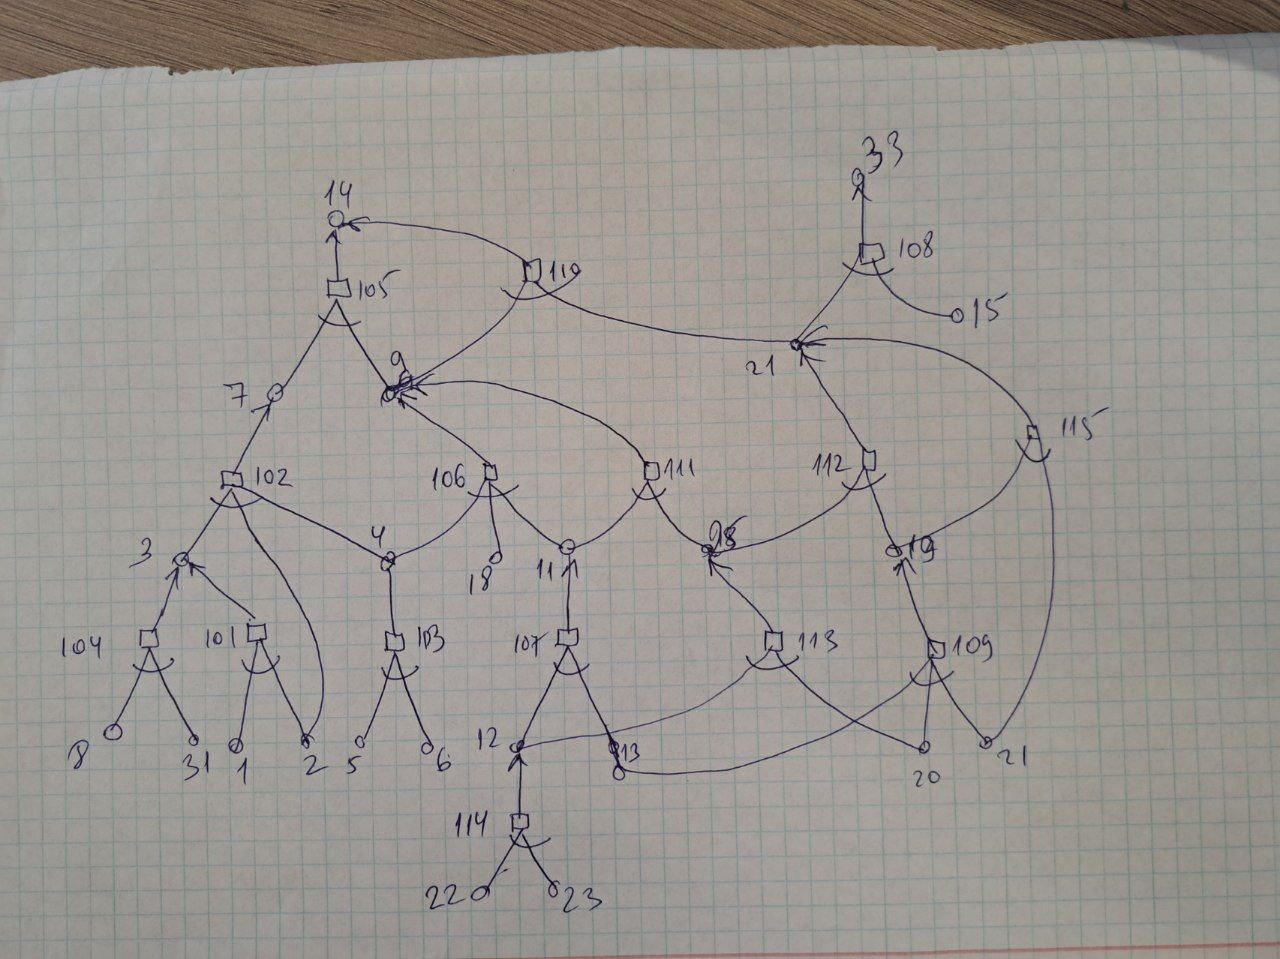 33
14
108
110
105
15
9
21
7
115
102
106
111
112
4
3
18
11
19
104
101
103
107
113
109
8
31
1
2
5
6
12
13
20
21
114
22
23